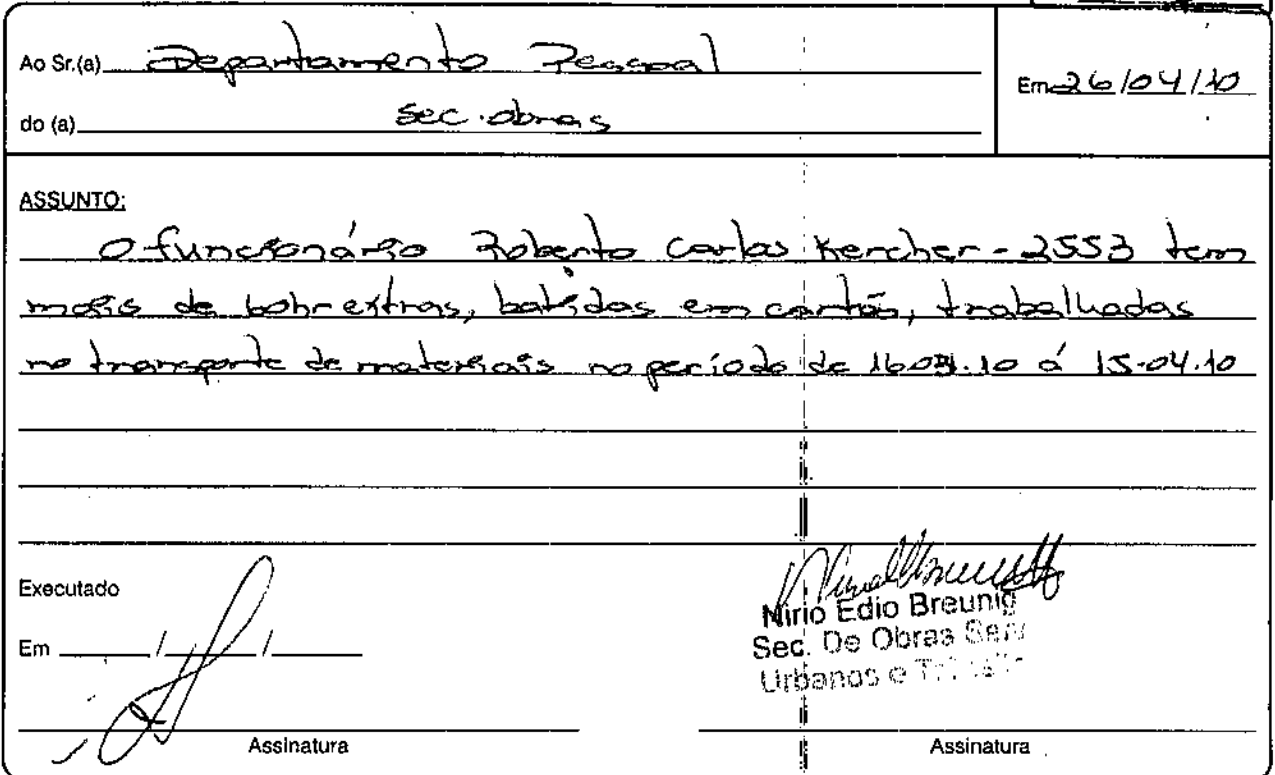 Ao Sr.(a) Departamento Pessoal
do (a) Sec. obras
Em 26/04/10
ASSUNTO:
O funcionário Roberto Carlos Kercher - 2553 tem
mais de extras, batidas em cartão, trabalhadas
no transporte de materiais no período de 16.03.10 á 15.04.10
Executado
Em / /
Nirio Edio Breunig
Sec. De Obras Serv
Urbanos e
Assinatura
Assinatura